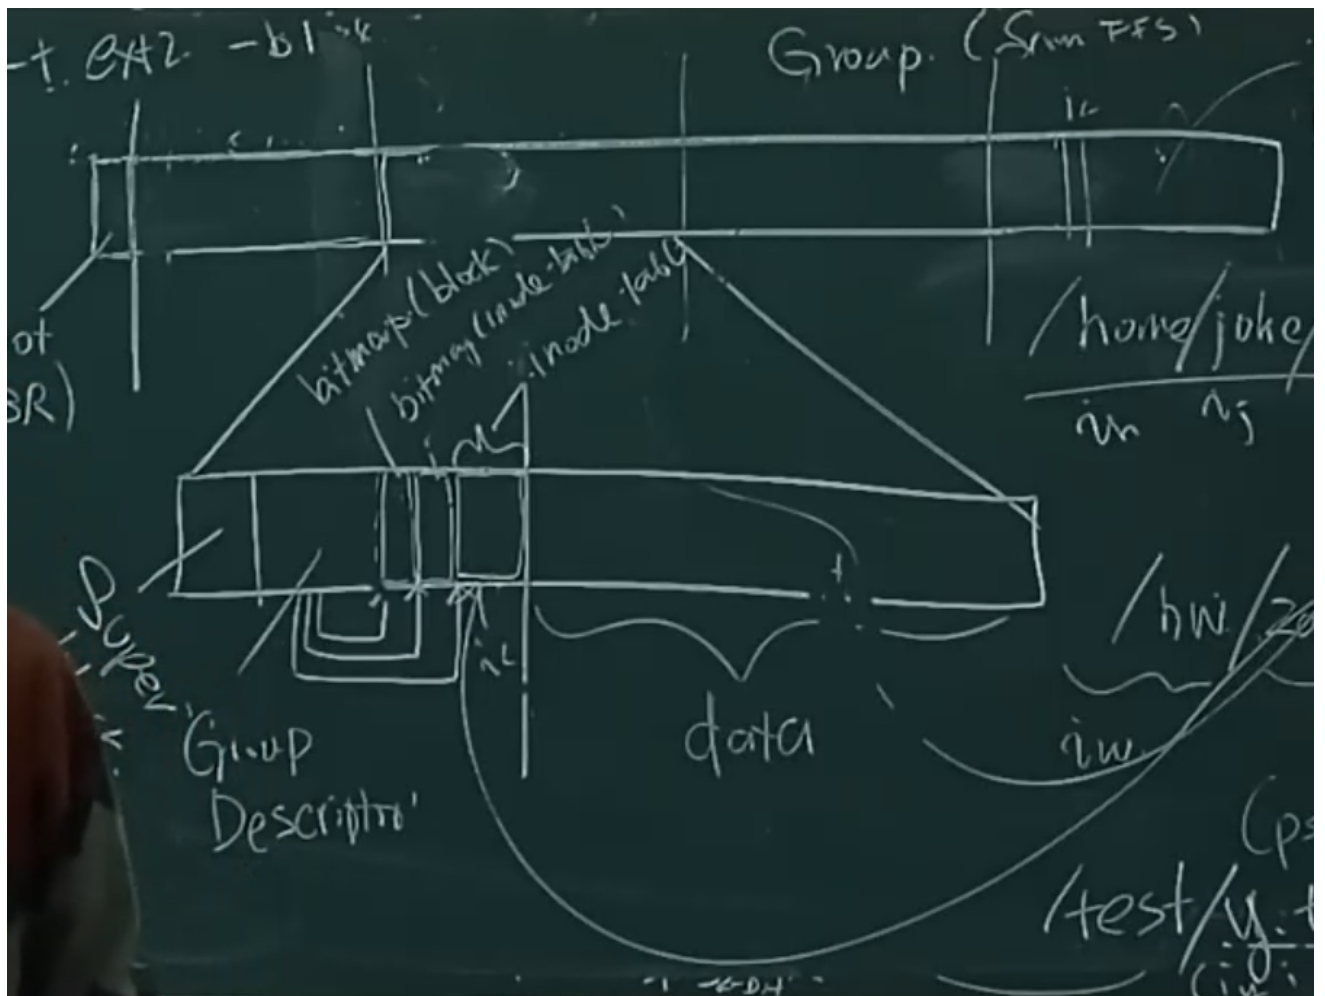 -t. ext2 -bl
Group. (
ic
ot
BR)
bitmap (block)
bitmap (inode table)
inode table
/home/joke/
in ij
Super
Group
Descriptor
ic
data
/hw/20
iw
(ps
/test/y.t